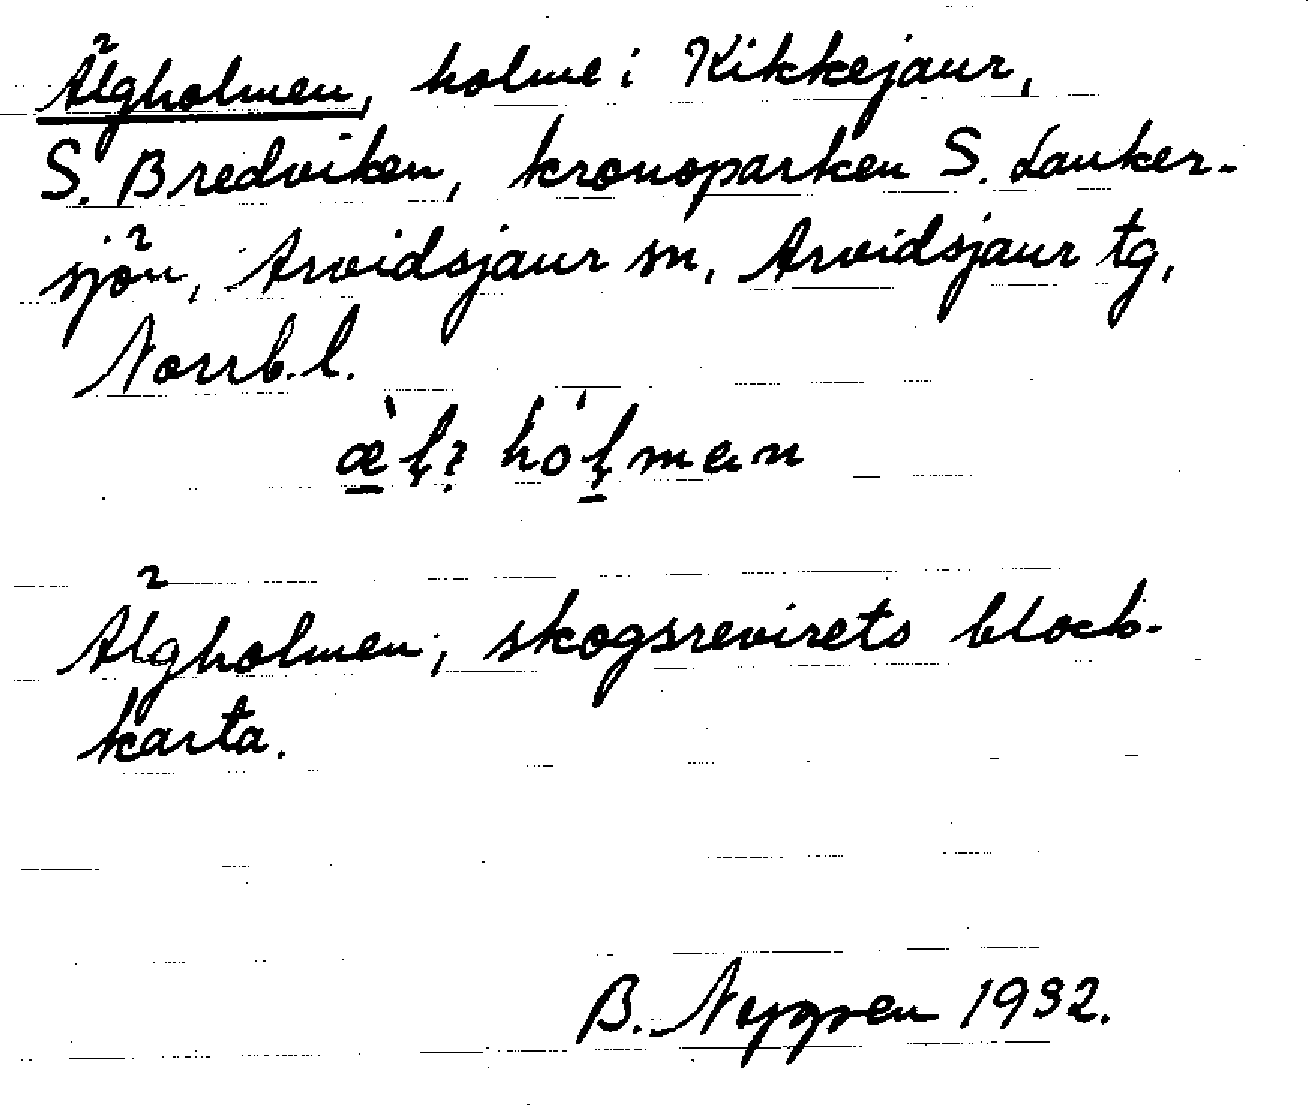 Älgholmen, holme i Kikkejaur,
S. Bredviken, kronoparken S. Lauker-
sjön, Arvidsjaur sn, Arvidsjaur tg,
Norrb. l.
Älgholmen, skogsrevirets block-
karta.
B. Nygren 1932.